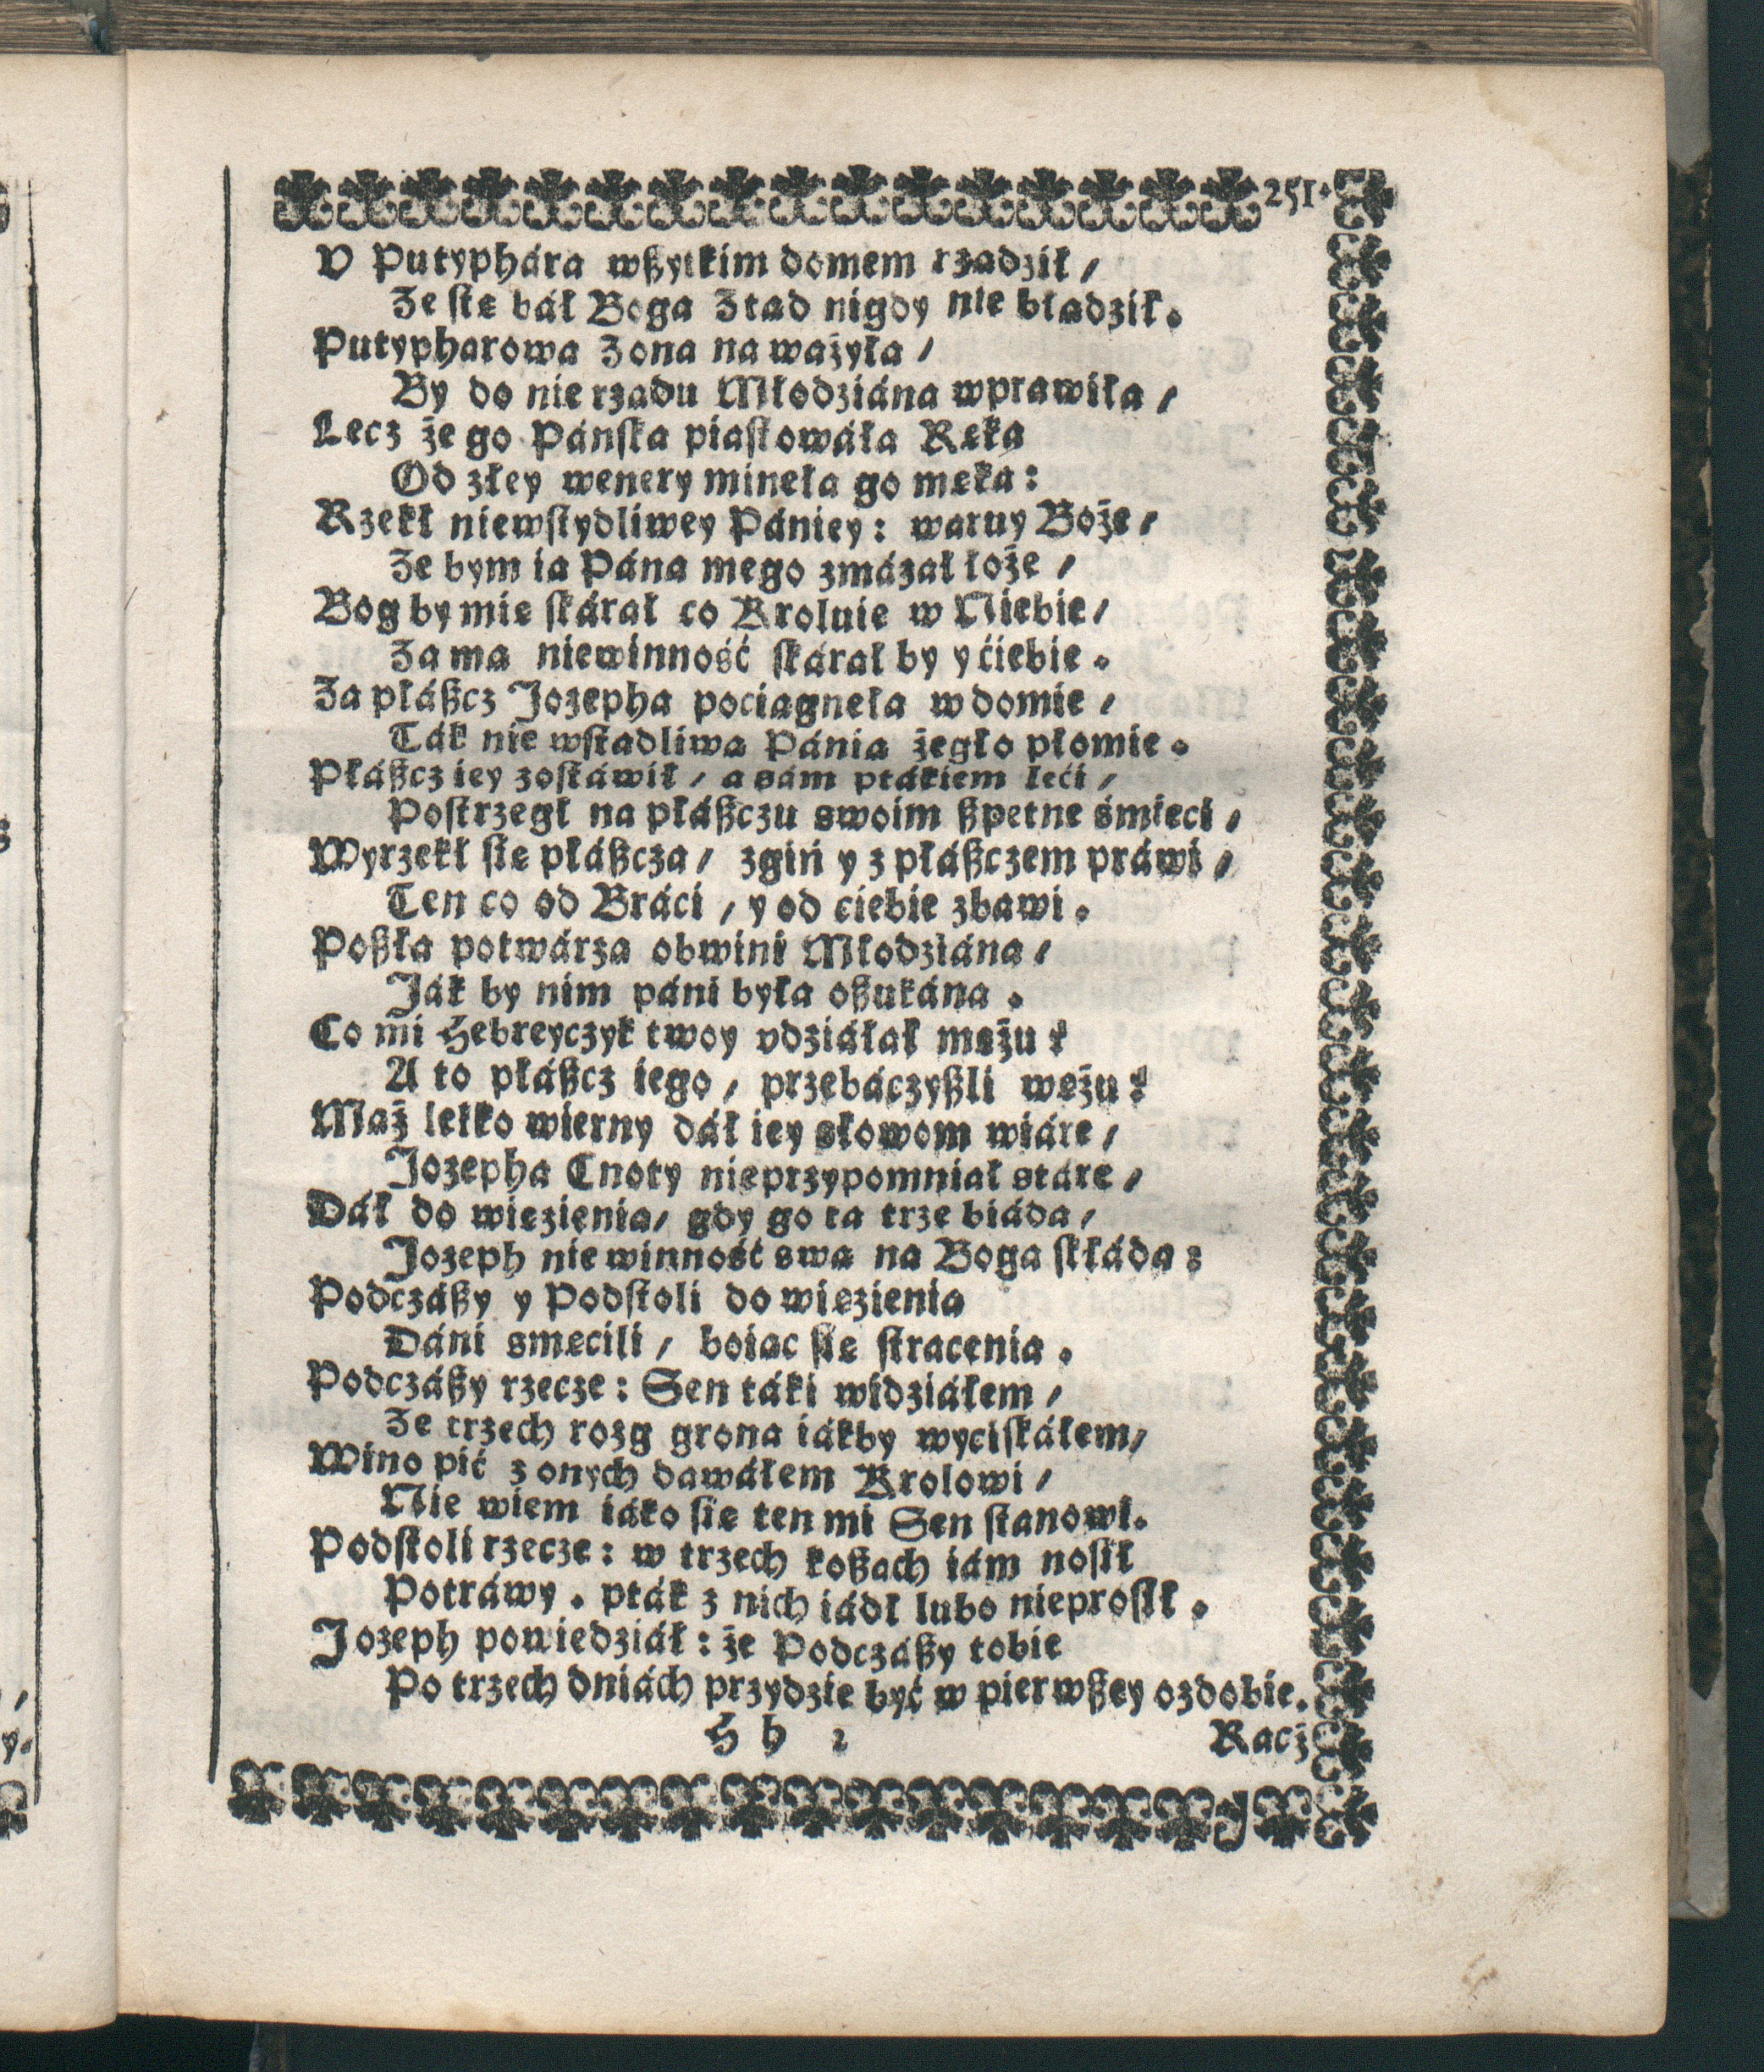 251.
V Putyphára wßytkim domem rządził /
Ze się bał Boga Ztąd nigdy nie błądził.
Putypharowa Zona na ważyła /
By do nie rządu Młodziána wprawiła /
Lecz że go Pánſka piaſtowáła Ręka
Od złey wenery minęła go męka:
Rzekł niewſtydliwey Pániey: waruy Boże /
Ze bym ia Pána mego zmázał łoże /
Bog by mię ſkárał co Kroluie w Niebie /
Za mą niewinność ſkárał by y ćiebie.
Za płáßcz Jozepha pociągnęła w domie /
Ták nie wſtadliwą Pánią żegło płomie.
Płáßcz iey zoſtáwił / a sám ptákiem leći /
Poſtrzegł na płáßczu swoim ßpetne śmieci /
Wyrzekł się płáßcza / zgiń y z płáßczem práwi /
Ten co od Bráci / y od ciebie zbawi.
Poßła potwárzą obwini Młodziána /
Ják by nim páni była oßukána.
Co mi Hebreyczyk twoy vdziáłał mężu?
A to płáßcz iego / przebáczyßli wężu?
Mąż letko wierny dáł iey słowom wiárę /
Jozepha Cnoty nieprzypomniał stáre /
Dáł do więzienia / gdy go ta trze biáda /
Jozeph nie winność swą na Boga ſkłáda:
Podczáßy y Podſtoli do więzienia
Dáni smęcili / boiąc się ſtracenia.
Podczáßy rzecze: Sen táki widziáłem /
Ze trzech rozg grona iákby wyciſkáłem /
Wino pić z onych dawáłem Krolowi /
Nie wiem iáko się ten mi Sen ſtanowi.
Podſtoli rzecze: w trzech koßach iám noſił
Potráwy. pták z nich iádł lubo nieproſił.
Jozeph powiedziáł: że Podczáßy tobie
Po trzech dniách przydzie być w pierwßey ozdobie.
H h 2
Racz